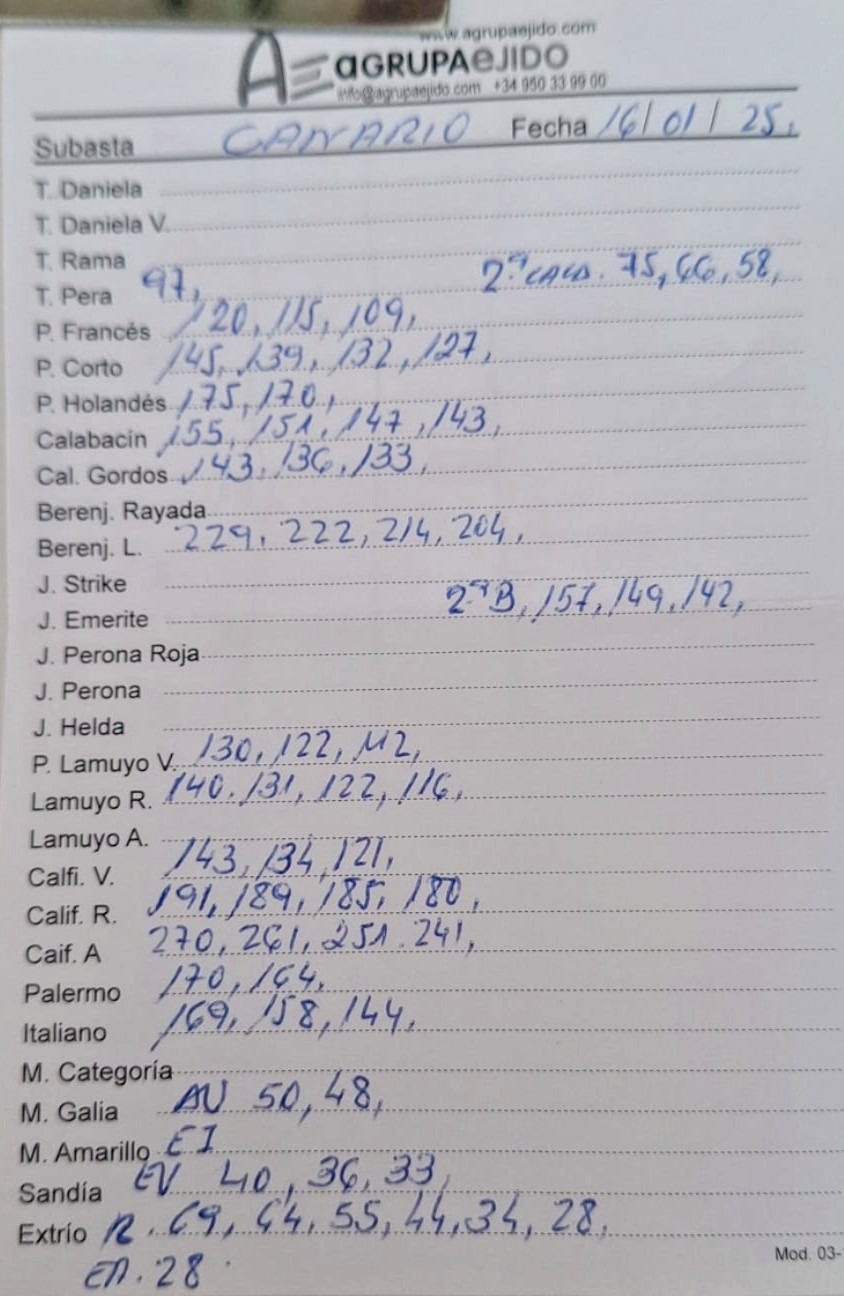 www.agrupaejido.com
AE AGRUPAEJIDO
info@agrupaejido.com +34 950 33 99 00
Subasta CANARIO Fecha 16/01/25.
T. Daniela
T. Daniela V.
T. Rama
T. Pera 97, 2ª CALD. 75, 66, 58,
P. Francés 120, 115, 109,
P. Corto 145, 139, 132, 127,
P. Holandés 175, 170,
Calabacín 155, 151, 147, 143,
Cal. Gordos 143, 136, 133,
Berenj. Rayada
Berenj. L. 229, 222, 214, 204,
J. Strike
J. Emerite 2ª B, 157, 149, 142,
J. Perona Roja
J. Perona
J. Helda
P. Lamuyo V. 130, 122, 112,
Lamuyo R. 140, 131, 122, 116,
Lamuyo A.
Calfi. V. 143, 134, 121,
Calif. R. 191, 189, 185, 180,
Caif. A 270, 261, 251. 241,
Palermo 170, 164,
Italiano 169, 158, 144,
M. Categoría
M. Galia AU 50, 48,
M. Amarillo EI
Sandía EV 40, 36, 33,
Extrío R. 69, 64, 55, 44, 34, 28,
28
Mod. 03-